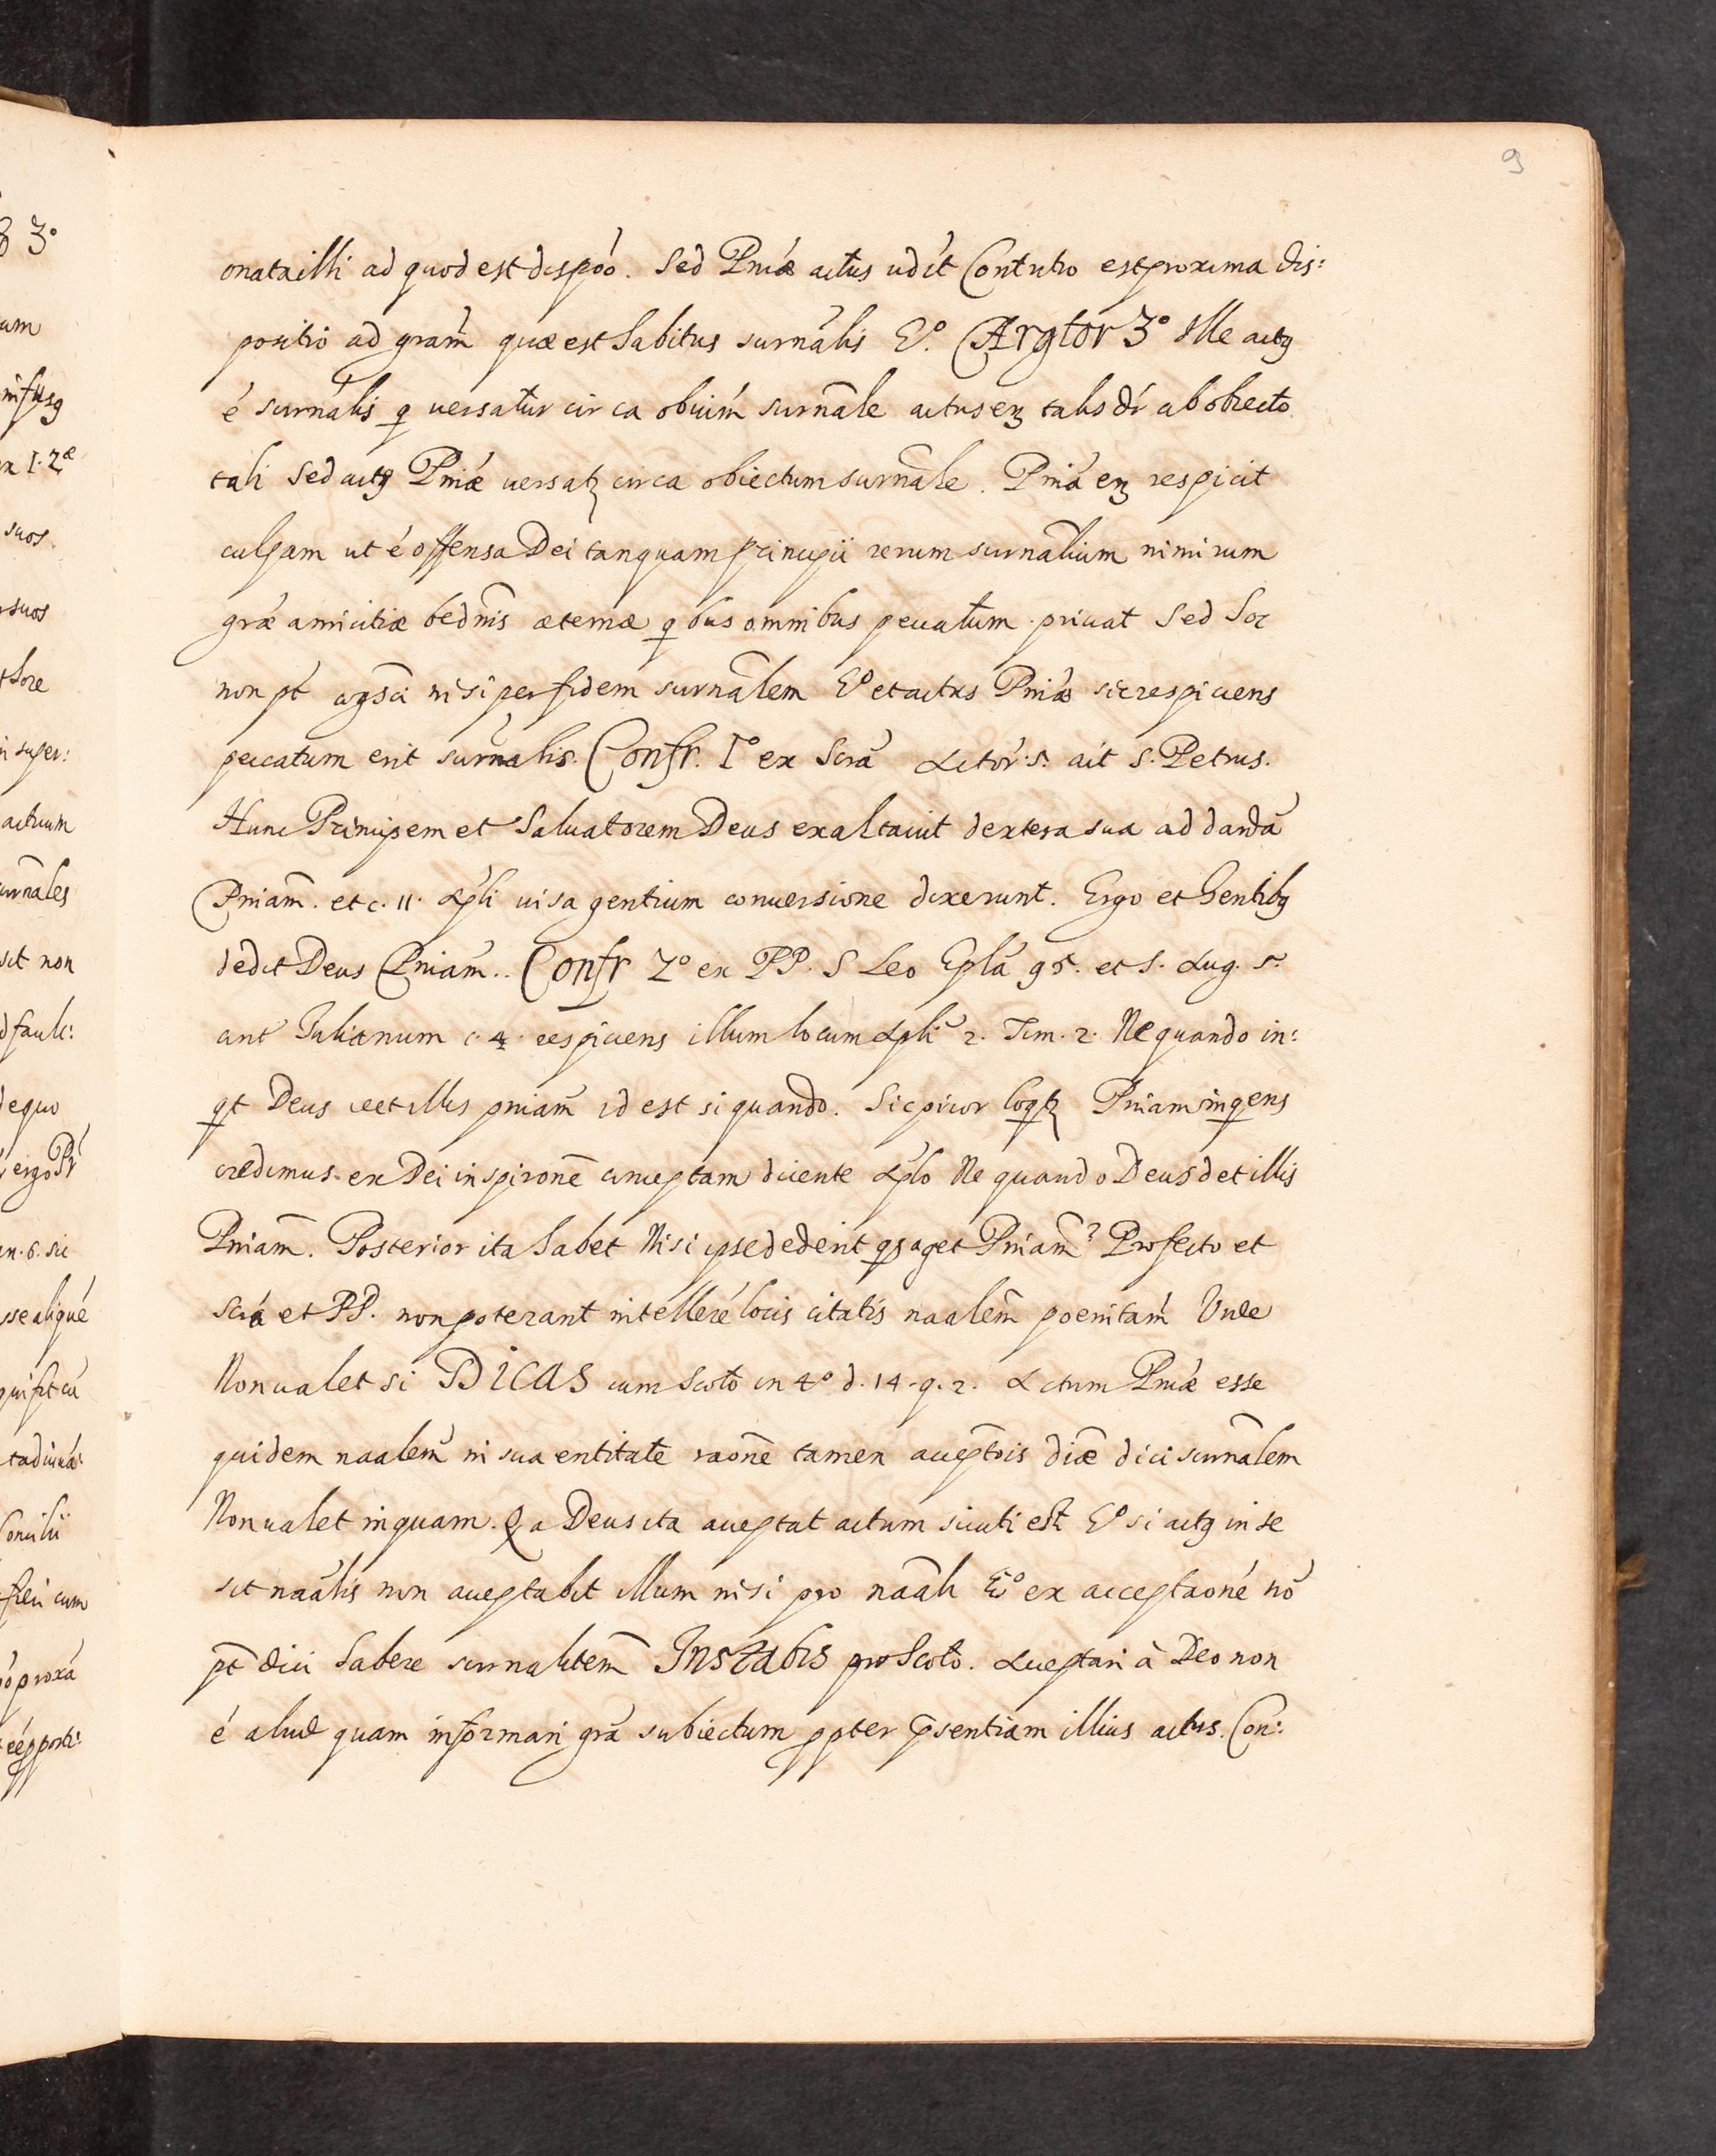 9
onata illi ad quod est dispóo. Sed Pniæ actus udét Contritio est proxima dis:
positio ad gram̄ quæ est habitus surnālis Eº. Argtor 3º Ille actꝯ
é surnālis q̄ uersatur circa obiūm surnāle actus enꝫ talis dr̄ ab obiecto
tali Sed actꝯ Pniǽ uersatꝫ circa obiectum surnāle. Pniā enꝫ respicit
culpam ut é offensa Dei tanquam principii rerum surnālium nimirum
grǽ amicitiæ bednīs æternæ qbus omnibus peccatum priuat Sed hoc
non pt̄ cogsci nisi per fidem surnālem Eº et actus Pniæ sic respiciens
peccatum erit surnālis. Confr. Iº ex Scrā Actor. 5. ait S. Petrus.
Hunc Principem et Saluatorem Deus exaltauit dextera sua ad dandā
Pniam̄. et c. 11. Apli uisa gentium conuersione dixerunt. Ergo et Gentibꝯ
dedit Deus Pniam̄.. Confr 2º ex PP. S Leo Eplā 95. et S. Aug. 5.
cont Iulianum c. 4. respiciens illum locum Apli 2. Tim. 2. Ne quando in:
qt Deus det illis pniam̄ id est si quando. Sic prior loqtꝫ Pniam inqens
credimus ex Dei inspironē conceptam dicente Aplo Ne quando Deus det illis
Pniam̄. Posterior ita habet Nisi ipse dederit qs aget Pniam̄? Profecto et
Scrā et PP. non poterant intellere locis citatis naalem̄ poenitam̄ Unde
Non ualet si DICAS cum Scoto in 4º d. 14. q. 2. Actum Pniǽ esse
quidem naalem̄ in sua entitate raone tamen acceptōis diǣ dici surnālem
Non ualet inquam. Qa Deus ita acceptat actum sicuti est Eº si actꝯ in se
sit naālis non acceptabit illum nisi pro naāli Eº ex acceptaone nō
pt̄ dici habere surnalitem̄ Instabis pro Scoto. Acceptari à Deo non
é aliud quam informari grā subiectum ppter p̄sentiam illius actus. Con: